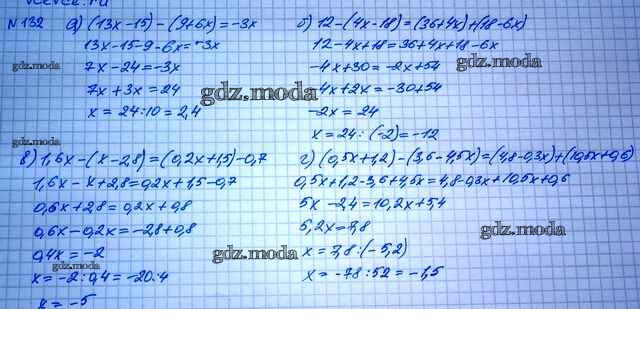 №132 а) (13x-15)-(9+6x)=-3x
13x-15-9-6x=-3x
7x-24=-3x
7x+3x=24
x=24:10=2,4
б) 12-(4x-18)=(36+4x)+(18-6x)
12-4x+18=36+4x+18-6x
-4x+30=-2x+54
-4x+2x=-30+54
-2x=24
x=24:(-2)=-12
в) 1,6x-(x-2,8)=(0,2x+1,5)-0,7
1,6x-x+2,8=0,2x+1,5-0,7
0,6x+2,8=0,2x+0,8
0,6x-0,2x=-2,8+0,8
0,4x=-2
x=-2:0,4=-20:4
x=-5
г) (0,5x+1,2)-(3,6-4,5x)=(4,8-0,3x)+(10,5x+0,6)
0,5x+1,2-3,6+4,5x=4,8-0,3x+10,5x+0,6
5x-2,4=10,2x+5,4
5,2x=7,8
x=7,8:(-5,2)
x=-78:52=-1,5
gdz.moda
gdz.moda
gdz.moda
gdz.moda
gdz.moda
gdz.moda
gdz.moda
gdz.moda